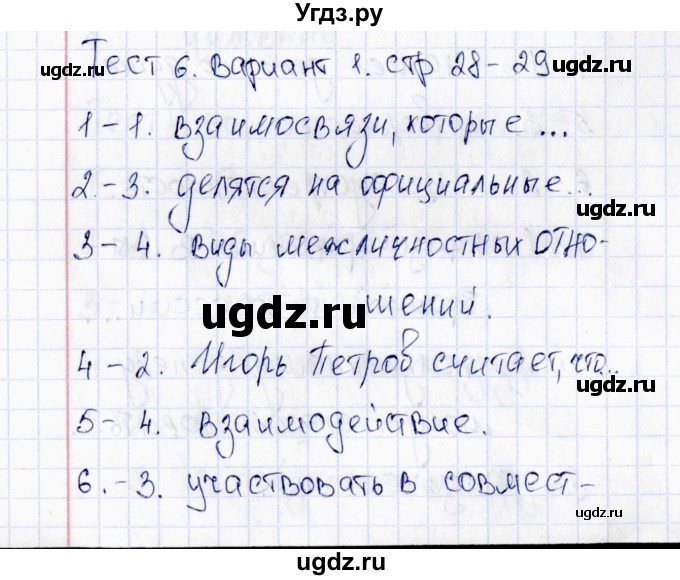 Угдз.ру
Тест 6. Вариант 1. стр 28-29
1-1. взаимосвязи, которые ...
2-3. делятся на официальные...
3-4. виды межличностных отно-
шений.
4-2. Игорь Петров считает, что..
5-4. взаимодействие.
6.-3. участвовать в совмест-
ugdz.ru
ugdz.ru
ugdz.ru
ugdz.ru
ugdz.ru
ugdz.ru
ugdz.ru
ugdz.ru